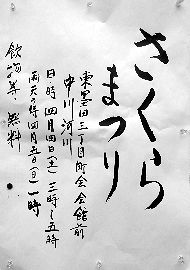 さくら
まつり
東墨田三丁目町会会館前
中川河川
日・時 四月四日(土)三時〜五時
雨天の時四月五日(日)一時
飲物等、無料